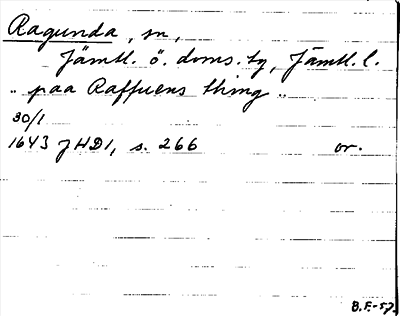 Ragunda, sn,
Jämtl. ö. doms. tg, Jämtl. l.
.. paa Raffuens thing ..
30/1
1643 JHD1, s. 266 or.
B.F.-57.